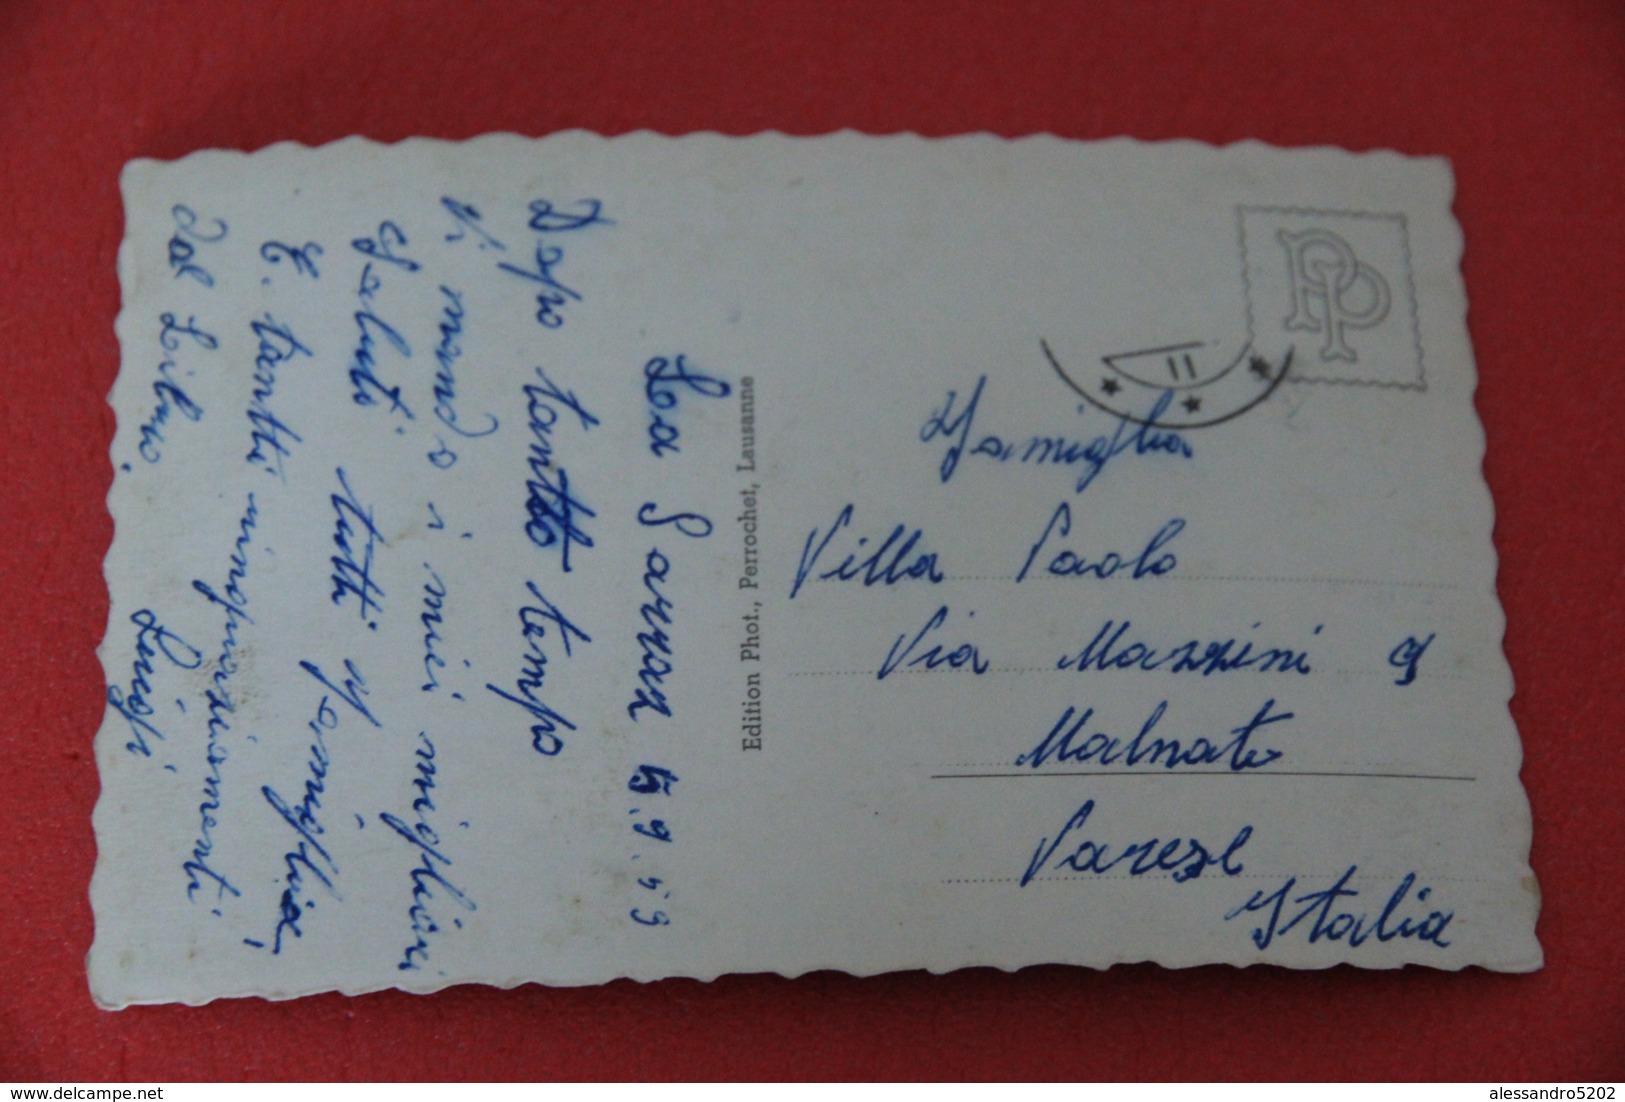 La Sarraz 15.9.59
Dopo tantto tempo
Vi mando i miei migliori
Saluti tutti in famiglia,
E. tantti ringraziamenti
dal
Luigi
Edition Phot., Perrochet, Lausanne
PP
11
Famiglia
Villa Paolo
Via Mazzini 9
Malnate
Varese
Italia
delcampe.net
alessandro5202